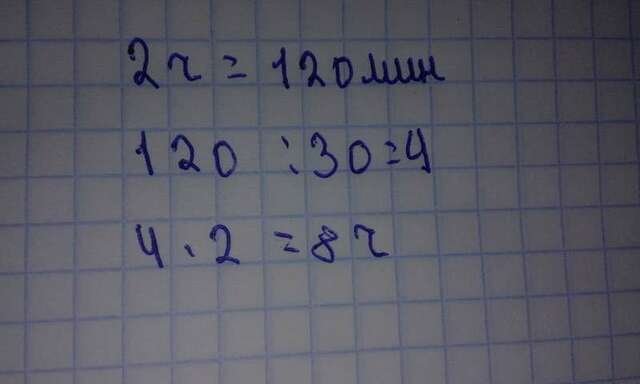 2ч = 120мин
120 : 30 = 4
4 · 2 = 8ч